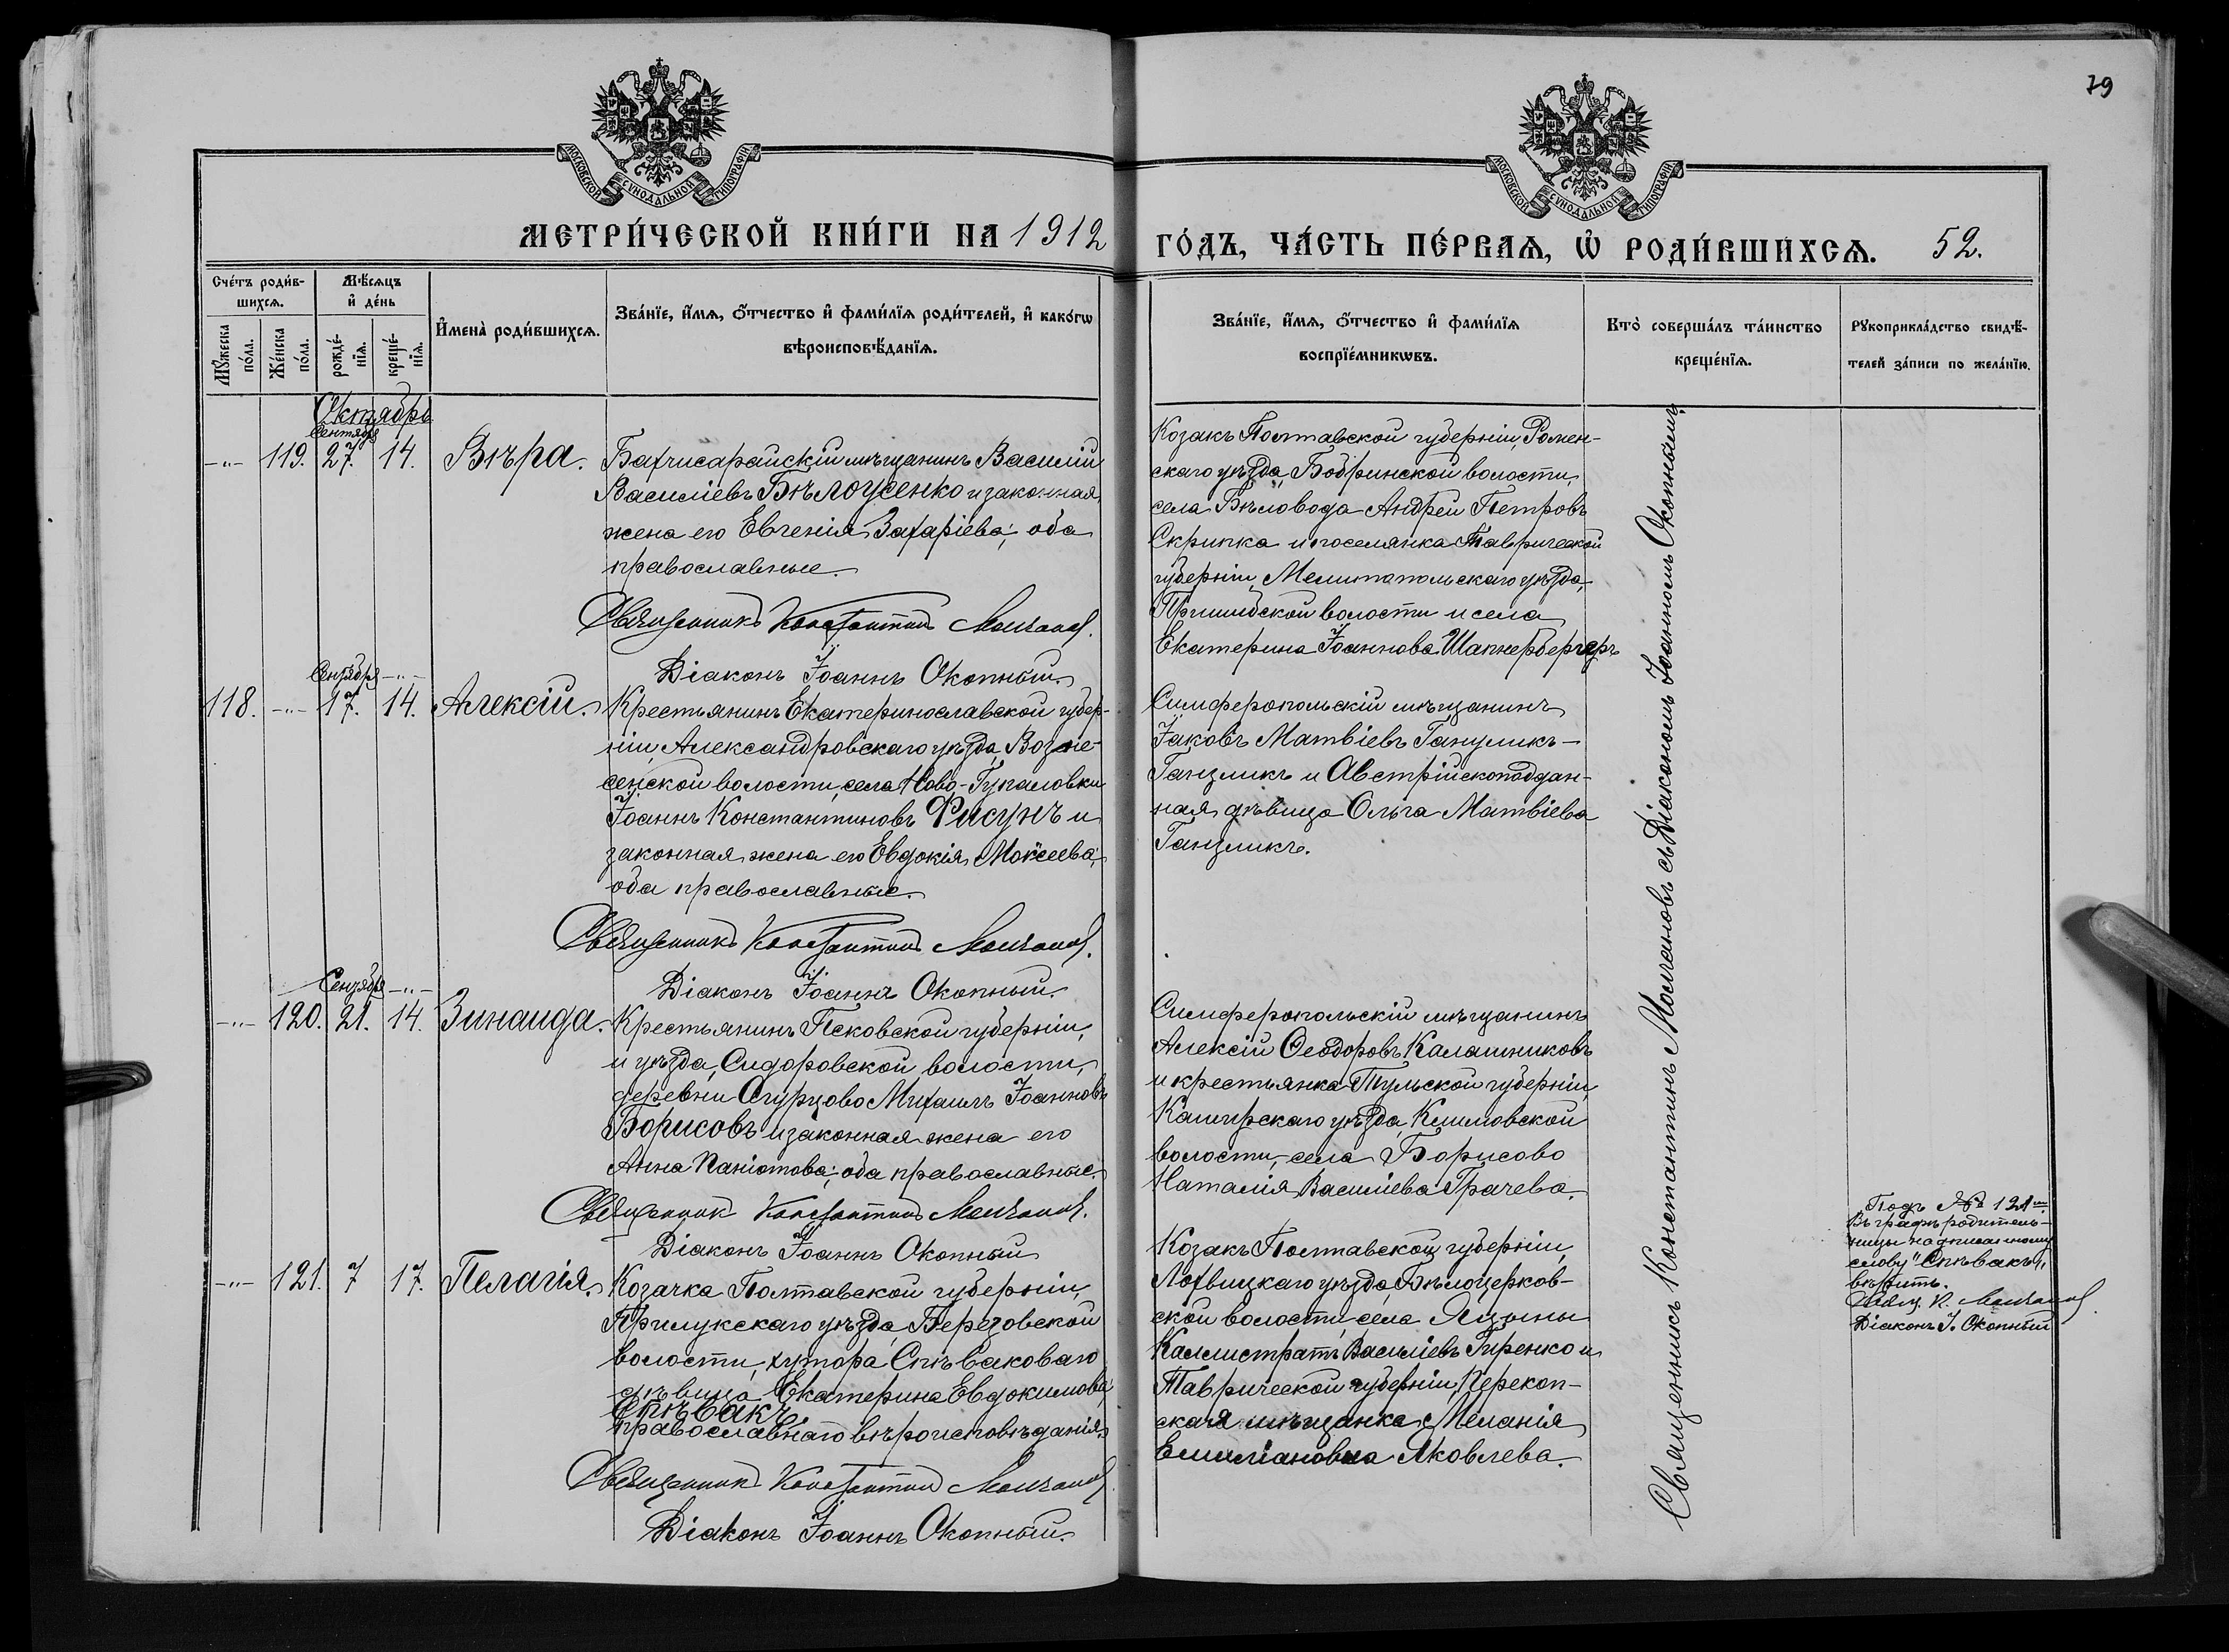 79
МОСКОВСКОЙ СѴНОДАЛЬНОЙ ТИПОГРАФІИ
МОСКОВСКОЙ СѴНОДАЛЬНОЙ ТИПОГРАФІИ
МЕТРИ́ЧЕСКОЙ КНИ́ГИ НА 1912
ГО́ДЪ, ЧА́СТЬ ПЕ́РВАѦ, Ѡ҆ РОДИ́ВШИХСѦ. 52.
Сче́тъ роди́в-
шихсѧ.
Мѣ́сѧцъ
и҆ де́нь
Мꙋ́жеска
по́ла.
Же́нска
по́ла.
рожде́-
нїѧ.
креще́-
нїѧ.
И҆мена̀ роди́вшихсѧ.
Зва́нїе, и҆́мѧ, ѻ҆́тчество и҆ фами́лїѧ роди́телей, и҆ како́гѡ
вѣроисповѣ́данїѧ.
Зва́нїе, и҆́мѧ, ѻ҆́тчество и҆ фами́лїѧ
воспрїе́мникѡвъ.
Кто̀ соверша́лъ та́инство
креще́нїѧ.
Рꙋкоприкла́дство свидѣ́-
телей за́писи по жела́нїю.
Октябрь
Сентября
-"- 119. 27. 14. Вѣра.
Бахчисарайскій мѣщанинъ Василій
Василіевъ Бѣлоусенко и законная
жена его Евгенія Захаріева; оба
православные.
Священникъ Константинъ Молчановъ.
Діаконъ Іоаннъ Окопный.
Козакъ Полтавской губерніи, Ромен-
скаго уѣзда, Бобринской волости,
села Бѣловода Андрей Петровъ
Скрипка и поселянка Таврической
губерніи, Мелитопольскаго уѣзда,
Пришибской волости и села
Екатерина Іоаннова Шапнербергеръ
Сентября -"-
118. -"- 17. 14. Алексій.
Крестьянинъ Екатеринославской губер-
ніи, Александровскаго уѣзда, Возне-
сенской волости, села Ново-Гупаловки
Іоаннъ Константиновъ Фисунъ и
законная жена его Евдокія Моѵсеева;
оба православные.
Священникъ Константинъ Молчановъ.
Діаконъ Іоаннъ Окопный.
Симферопольскій мѣщанинъ
Іаковъ Матвіевъ Ганцликъ-
Ганзликъ и Австрійскоподдан-
ная дѣвица Ольга Матвіева
Ганзликъ.
Сентября -"-
-"- 120. 21. 14. Зинаида.
Крестьянинъ Псковской губерніи,
и уѣзда, Сидоровской волости,
деревни Огурцово Михаилъ Іоанновъ
Борисовъ и законная жена его
Анна Паніотова; оба православные.
Священникъ Константинъ Молчановъ.
Діаконъ Іоаннъ Окопный
Симферопольскій мѣщанинъ
Алексій Ѳеодоровъ Калашниковъ
и крестьянка Тульской губерніи,
Каширскаго уѣзда, Климовской
волости, села Борисово
Наталія Василіева Грачева.
-"- 121. 7 17. Пелагія.
Козачка Полтавской губерніи,
Прилукскаго уѣзда, Березовской
волости, хутора Спѣваковаго
дѣвица Екатерина Евдокимова
Спѣвакъ
православнаго вѣроисповѣданія.
Священникъ Константинъ Молчановъ
Діаконъ Іоаннъ Окопный.
Козакъ Полтавской губерніи,
Лохвицкаго уѣзда, Бѣлоцерков-
ской волости, села Яцыны
Каллистратъ Василіевъ Гиренко и
Таврической губерніи, Перекоп-
ская мѣщанка Меланія
Емиліановна Яковлева.
Священникъ Константинъ Молчановъ съ Діакономъ Іоанномъ Окопнымъ.
Подъ № 121м
въ графѣ родитель-
ницы надписанному
слову "Спѣвакъ"
вѣрить.
Свящ. К. Молчановъ.
Діаконъ І. Окопный